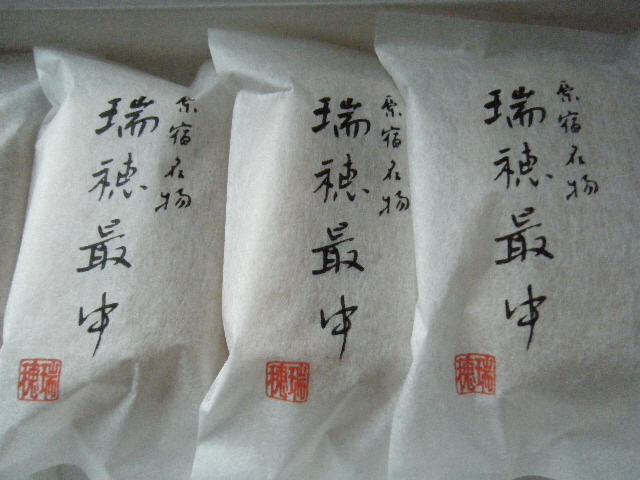 原宿名物
瑞穂最中
瑞穂
原宿名物
瑞穂最中
瑞穂
原宿名物
瑞穂最中
瑞穂